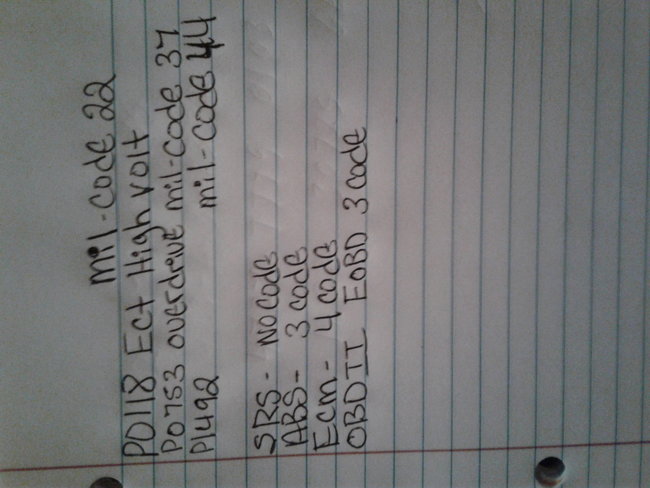 mil-code 22
P0118 Ect High volt
P0753 overdrive mil-code 37
P1492 mil-code 44
SRS- No code
ABS- 3 code
Ecm- 4 code
OBD II EOBD 3 code